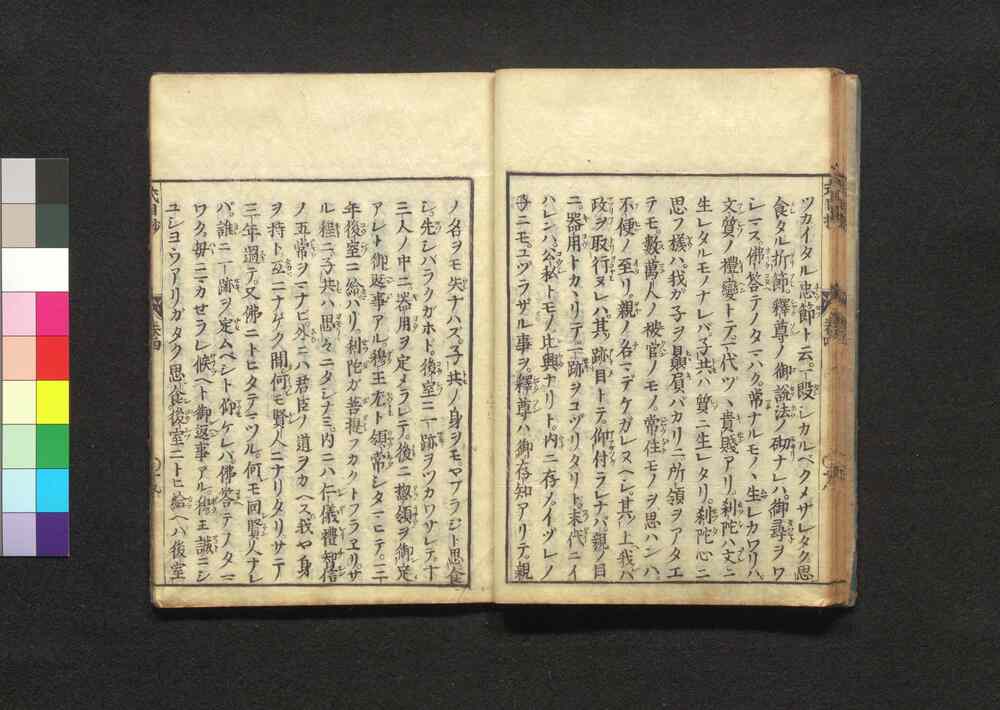 ツカイタル忠節ト云。一段シカルベクメサレタク思
食タル折節釋尊ノ御說法ノ砌ナレハ。御尋ヲワ
シマス佛答テノタマハク。常ナルモノヽ生レカワリハ
文質ノ禮變トテ一代ツヽ貴賤アリ。利陀ハ文ニ
生レタルモノナレバ。子共ハ質ニ生レタリ。利陀心ニ
思フ樣ハ。我ガ子ヲ贔屓バカリニ所領ヲアタエ
テモ。數萬人ノ被官ノモノ。常住モノヲ思ハンハ。
不便ノ至リ親ノ名マデケガレヌヘシ。其上我バ
政ヲ取行ヌレハ。其跡目トテ。仰付ラレナバ親ノ目
ニ。器用トカヽリテ。一跡ヲユヅリタリト。末代ニイ
ハレンハ。公私トモノ比興ナリト。内ニ存ノ。イヅレノ
子ニモ。ユヅラザル事ヲ。釋尊ハ御存知アリテ親
ノ名ヲモ失ナハズ。子共ノ身ヲモ。ヤブラジト思食
シ。先シバラクガホド。後室ニ一跡ヲツカワサレテ。十
三人ノ中ニ。器用ヲ定メラレテ。後ニ惣領ヲ御定
アレト御返事アル。穆王尤ト領常シタマヒテ。三
年後室ニ給ハリ。利陀ガ菩提フカクトフラヱリ。サ
ル程ニ子共ハ思々ニタシナミ。内ニハ仁儀禮智信
ノ五常ヲマナビ外ニハ君臣ノ道ヲカヘス我ヤ身
ヲ持ト互ニナゲク間何モ賢人ニナリタリ。サテ
三年過テ。又佛ニトヒタテマツル。何モ同賢人ナレ
バ。誰ニ一跡ヲ定ムベシト仰ケレバ。佛答テノタマ
ワク。毋ニマカセラレ候ヘト御返事アル。穆王誠ニシ
ユショウアリガタク思食。後室ニトヒ給ヘハ後室